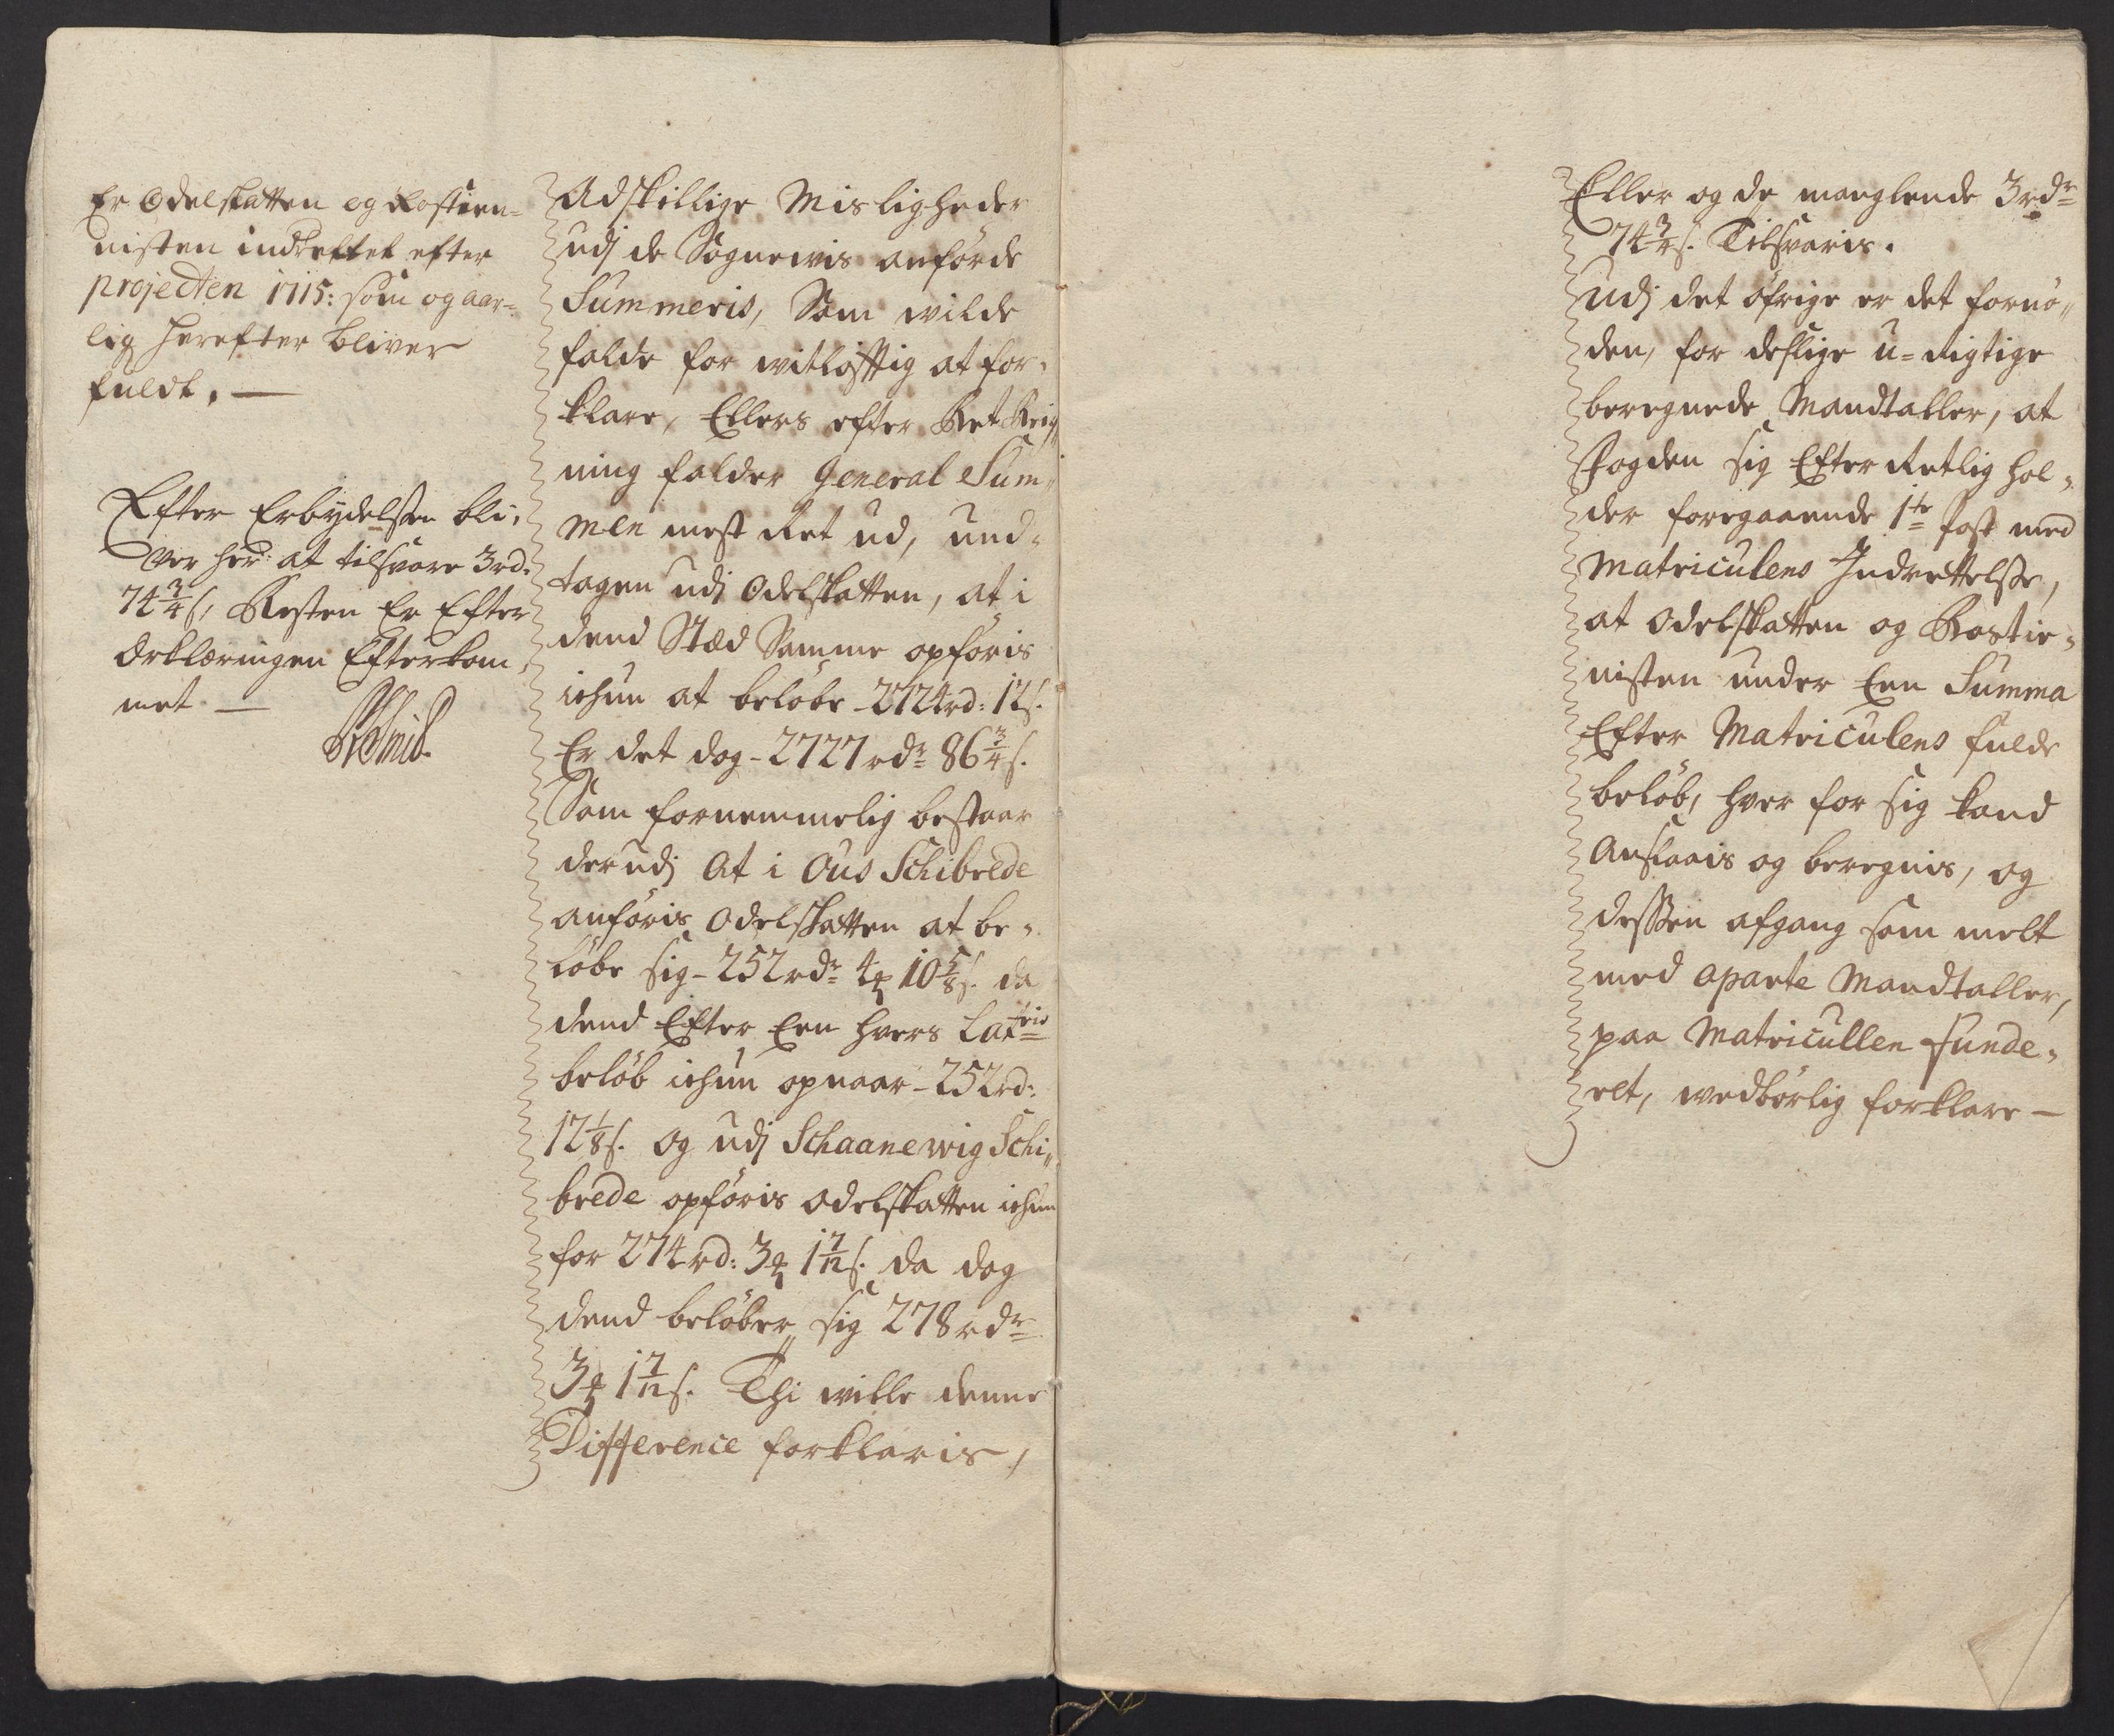 Er Odelskatten og Rostien-
nisten indrettet efter
projecten 1715: som og aar-
lig herefter bliver
fuldt. —
Efter Erbydelsen bli,
ver her at tilsvare 3rd.
74 3/4 s, Resten Er Efter
Erklæringen Efterkom
met. —
Adskillige Misligheder
udj de Sognevis anförde
Summeris, Som vilde
falde for vitlöfftig at for,
klare, Ellers efter Ret Reig,,
ning falder General Sum,,
men mest Ret ud, und-
tagen udj Odelskatten, at i
dend Stæd Samme opföris
ichun at belöbe - 2724rd: 12s.
Er det dog - 2727 rdr 86 3/4 s.
Som fornemmelig bestaar
derudj At i Ous Schibrede
anföris Odelskatten at be,
löbe sig - 252 rdr 4 ꝶ 10 5/8 s. da
dend Efter Een hvers Latris
belöb ichun opnaar - 252rd:
12 1/8 s. og udj Schaanewig Schi,,
brede opföris Odelskatten ichun
for 274 rd: 3 ꝶ 1 7/12 s. da dog
dend belöber sig 278 rdr
3 ꝶ 1 7/12 s. Thi wille denne
Difference forklaris,
Eller og de manglende 3rdr
74 3/4 s. Tilsvaris.
Udj det öfrige er det fornö,,
den, for deslige u-Rigtige
beregnede Mandtaller, at
Fogden sig Efter Retlig hol,
der foregaaende 1te Post med
Matriculens Indrettelse,
at Odelskatten og Rostie,
nisten under Een Summa
Efter Matriculens fulde
belöb, hver for sig kand
Anslaais og beregnis, og
dessen afgang som melt
med aparte Mandtaller,
paa Matricullen funde,
ret, wedbörlig forklare —